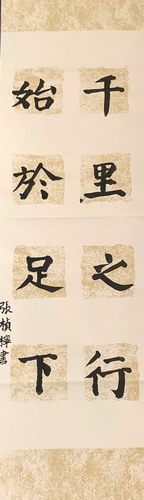 千里之行
始於足下
張楨檸書